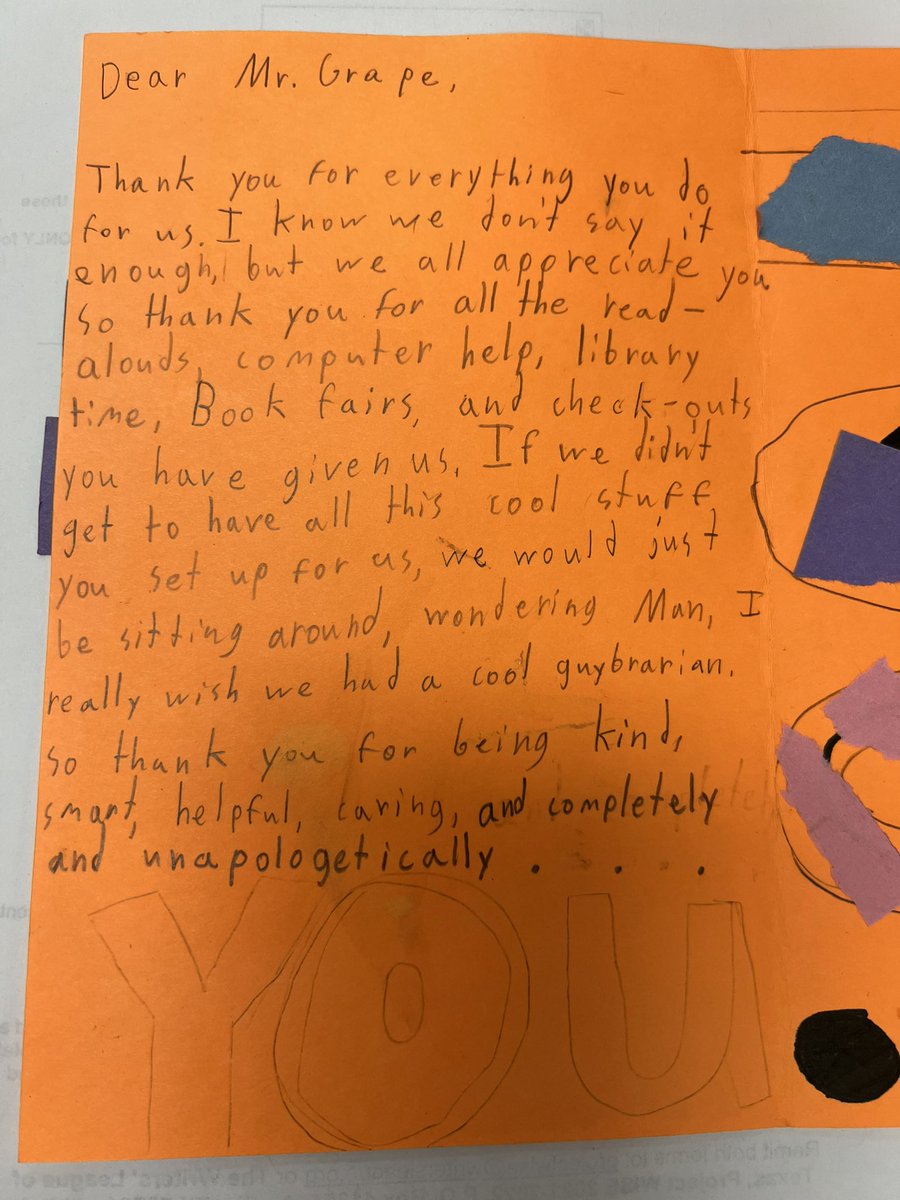 Dear Mr. Grape,
Thank you for everything you do
for us. I know we don't say it
enough, but we all appreciate you
so thank you for all the read-
alouds, computer help, library
time, Book fairs, and check-outs
you have given us. If we didn't
get to have all this cool stuff
you set up for us, we would just
be sitting around, wondering Man, I
really wish we had a cool guybrarian.
so thank you for being kind,
smart, helpful, caring, and completely
and unapologetically . . .
YOU
those
ONLY fo
Remit both forms to
or The Writers' League of
Texas, Project